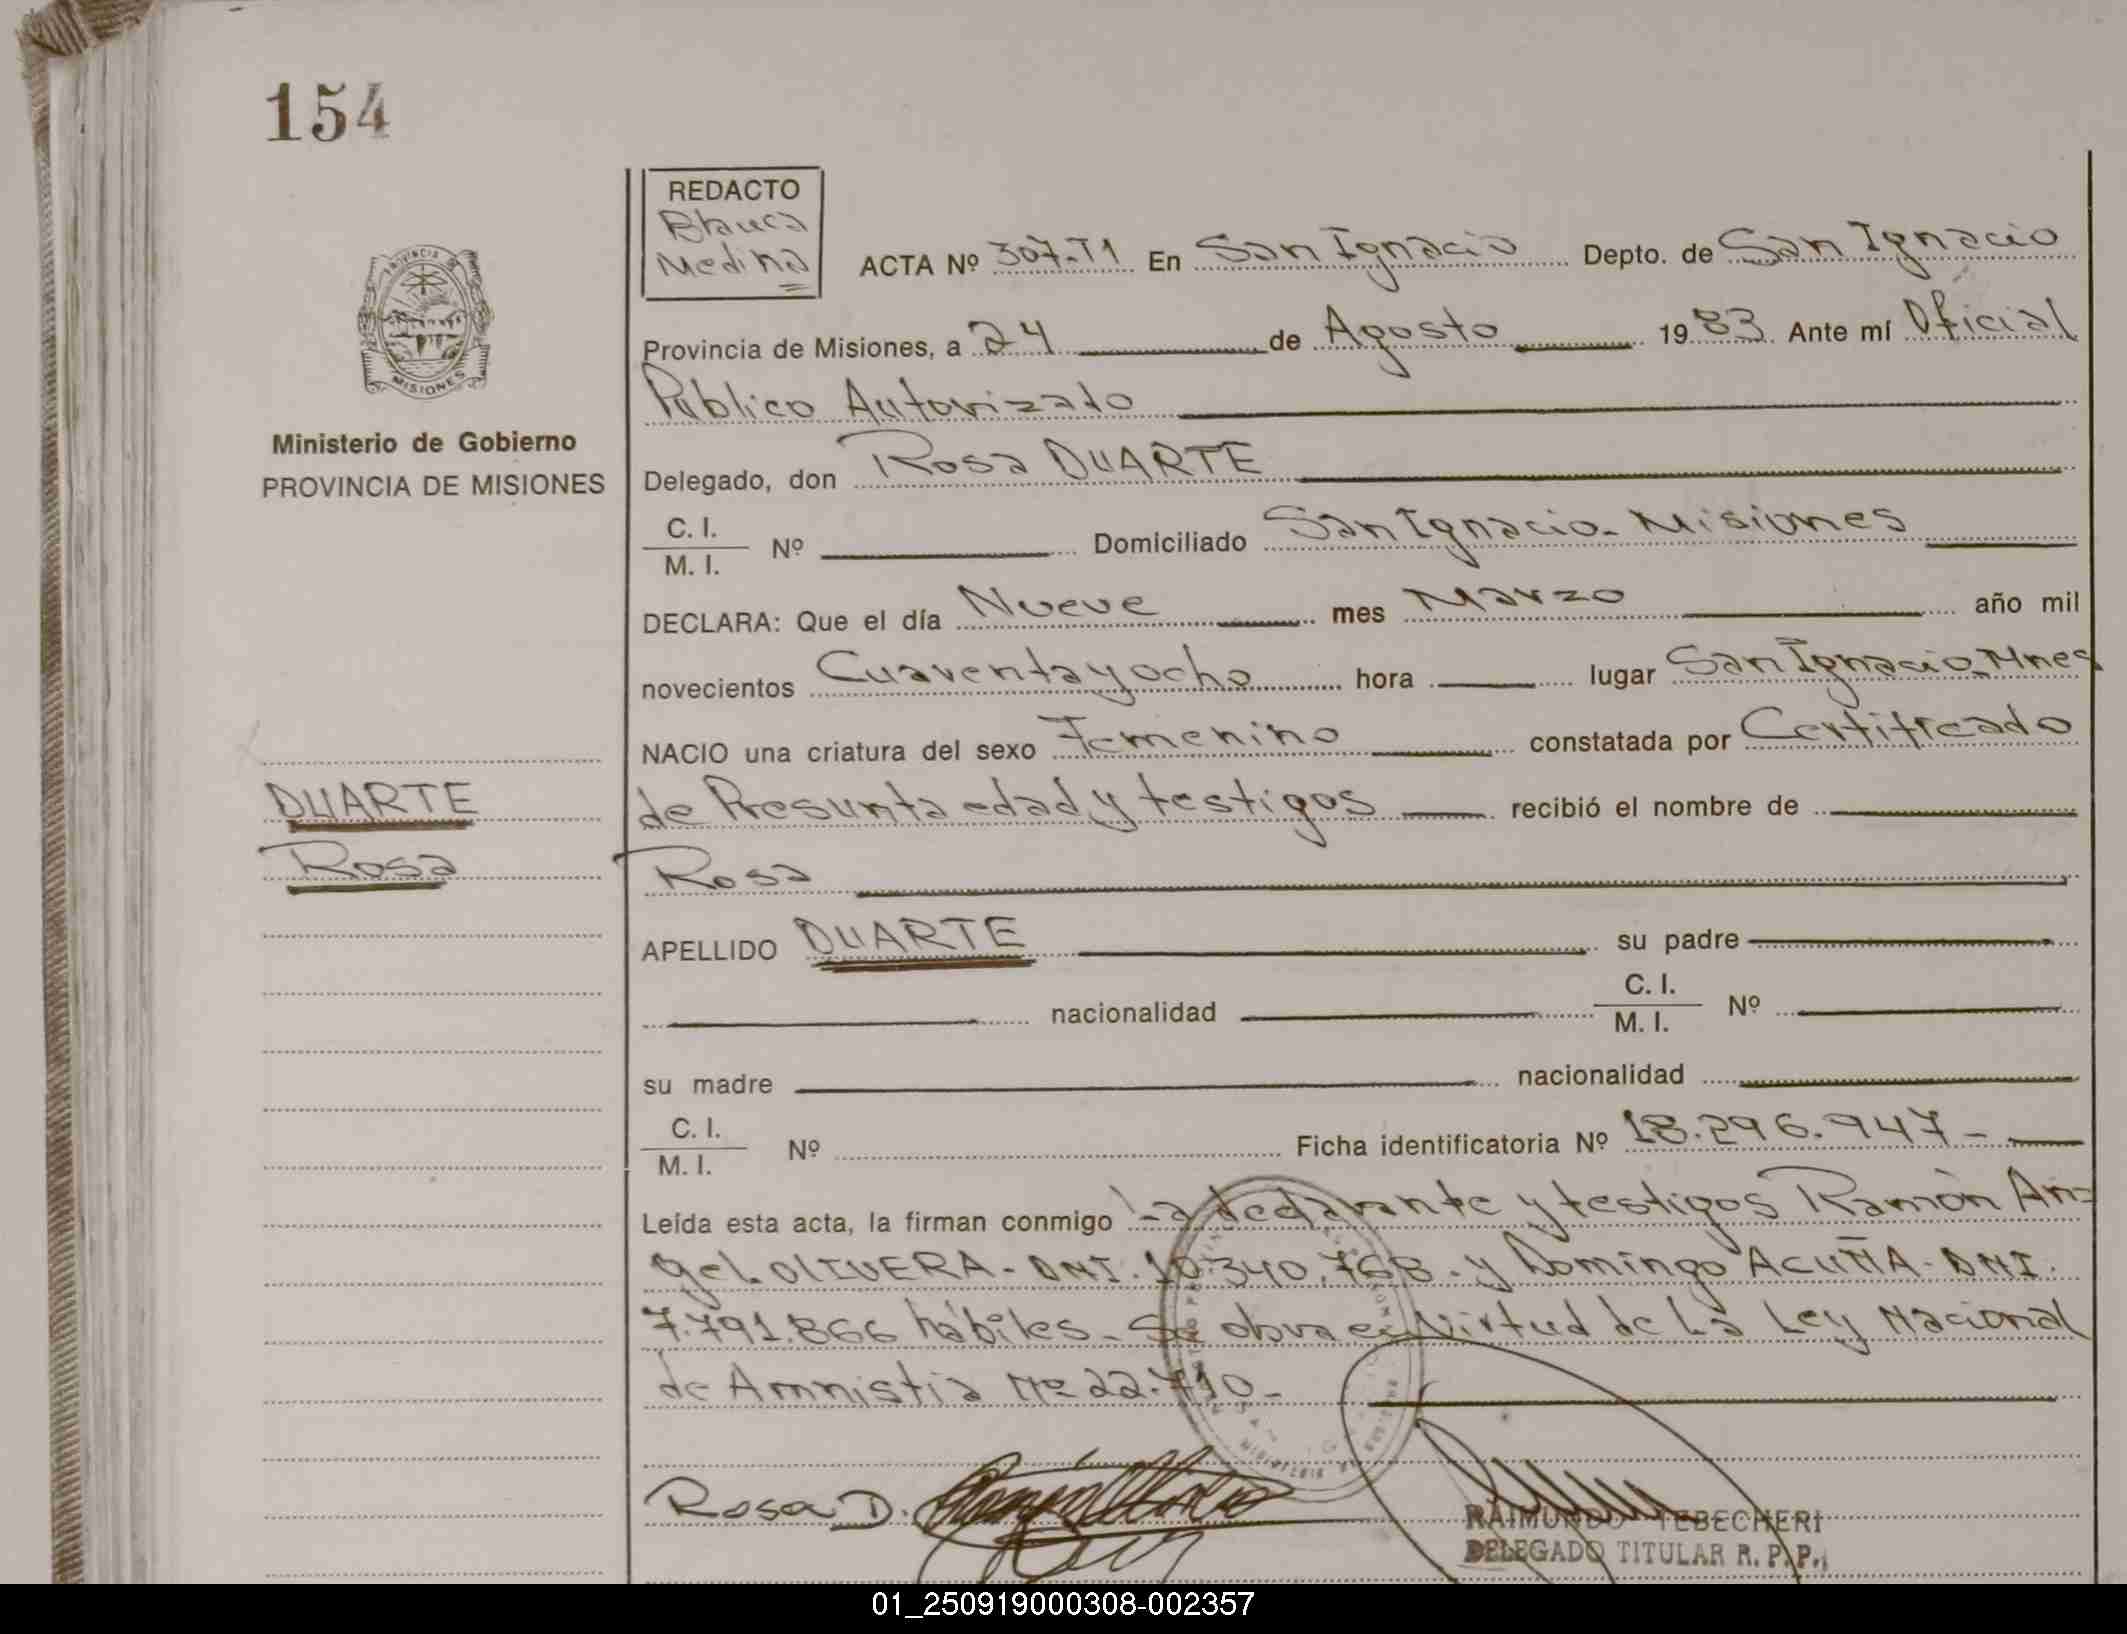 154
REDACTO
Blanca
Medina
ACTA Nº 307-T1 En San Ignacio Depto. de San Ignacio
Provincia de Misiones, a 24 de Agosto 1983. Ante mí Oficial
Público Autorizado
Delegado, don Rosa DUARTE
C. I.
M. I. Nº Domiciliado San Ignacio - Misiones
DECLARA: Que el día Nueve mes Marzo año mil
novecientos Cuarenta y ocho hora lugar San Ignacio Mnes
NACIO una criatura del sexo Femenino constatada por Certificado
de Presunta edad y testigos recibió el nombre de
Rosa
APELLIDO DUARTE su padre
nacionalidad C. I. M. I. Nº
su madre nacionalidad
C. I. M. I. Nº Ficha identificatoria Nº 18.296.947-
Leída esta acta, la firman conmigo La declarante y testigos Ramón An=
gel OLIVERA - DNI. 10.340.768 - y Domingo ACUÑA - DNI.
7.791.866 hábiles - Se obra en virtud de La Ley Nacional
de Amnistia Nº 22.410-
Rosa D.
RAIMUNDO TEBECHERI
DELEGADO TITULAR R. P. P.
PROVINCIA DE
MISIONES
Ministerio de Gobierno
PROVINCIA DE MISIONES
DUARTE
Rosa
01_250919000308-002357